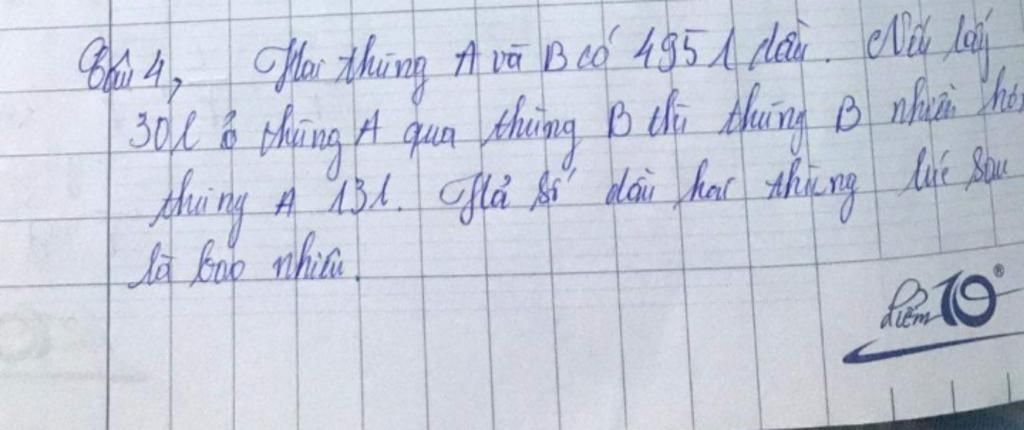 Câu 4, Hai thùng A và B có 495 l dầu. Nếu lấy
30l ở thùng A qua thùng B thì thùng B nhiều hơn
thùng A 13l. Hỏi số dầu hai thùng lúc sau
là bao nhiêu.
Điểm 10®